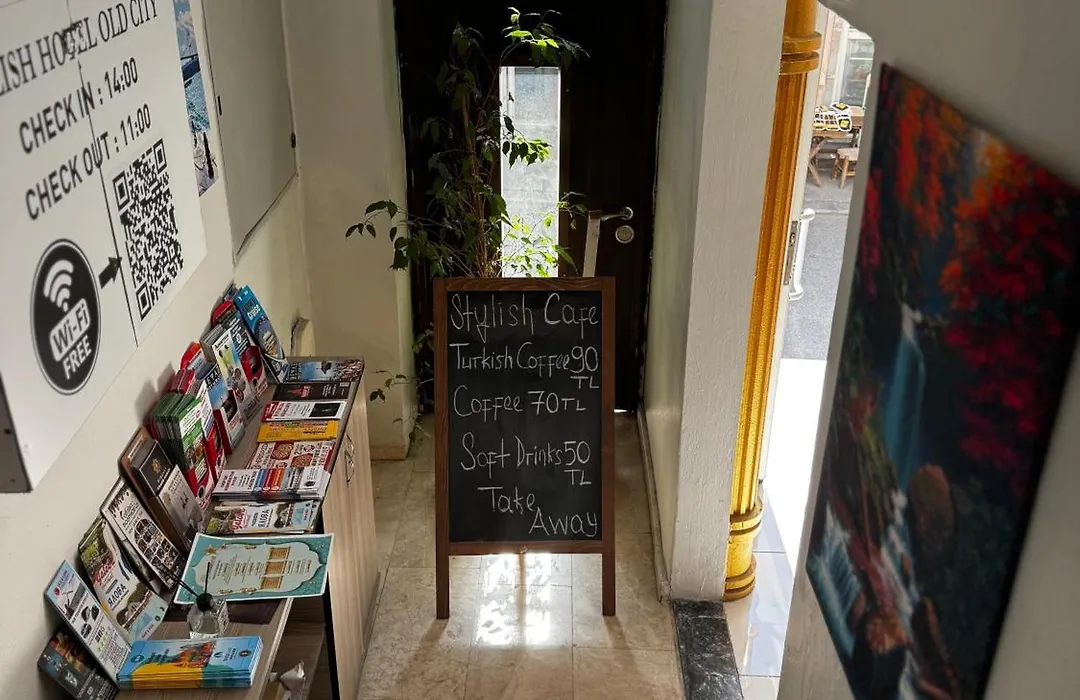 LISH HOTEL OLD CITY
CHECK IN : 14:00
CHECK OUT : 11:00
Wi-Fi
FREE
Stylish Cafe
Turkish Coffee 90
TL
Coffee 70 TL
Soft Drinks 50
TL
Take
Away